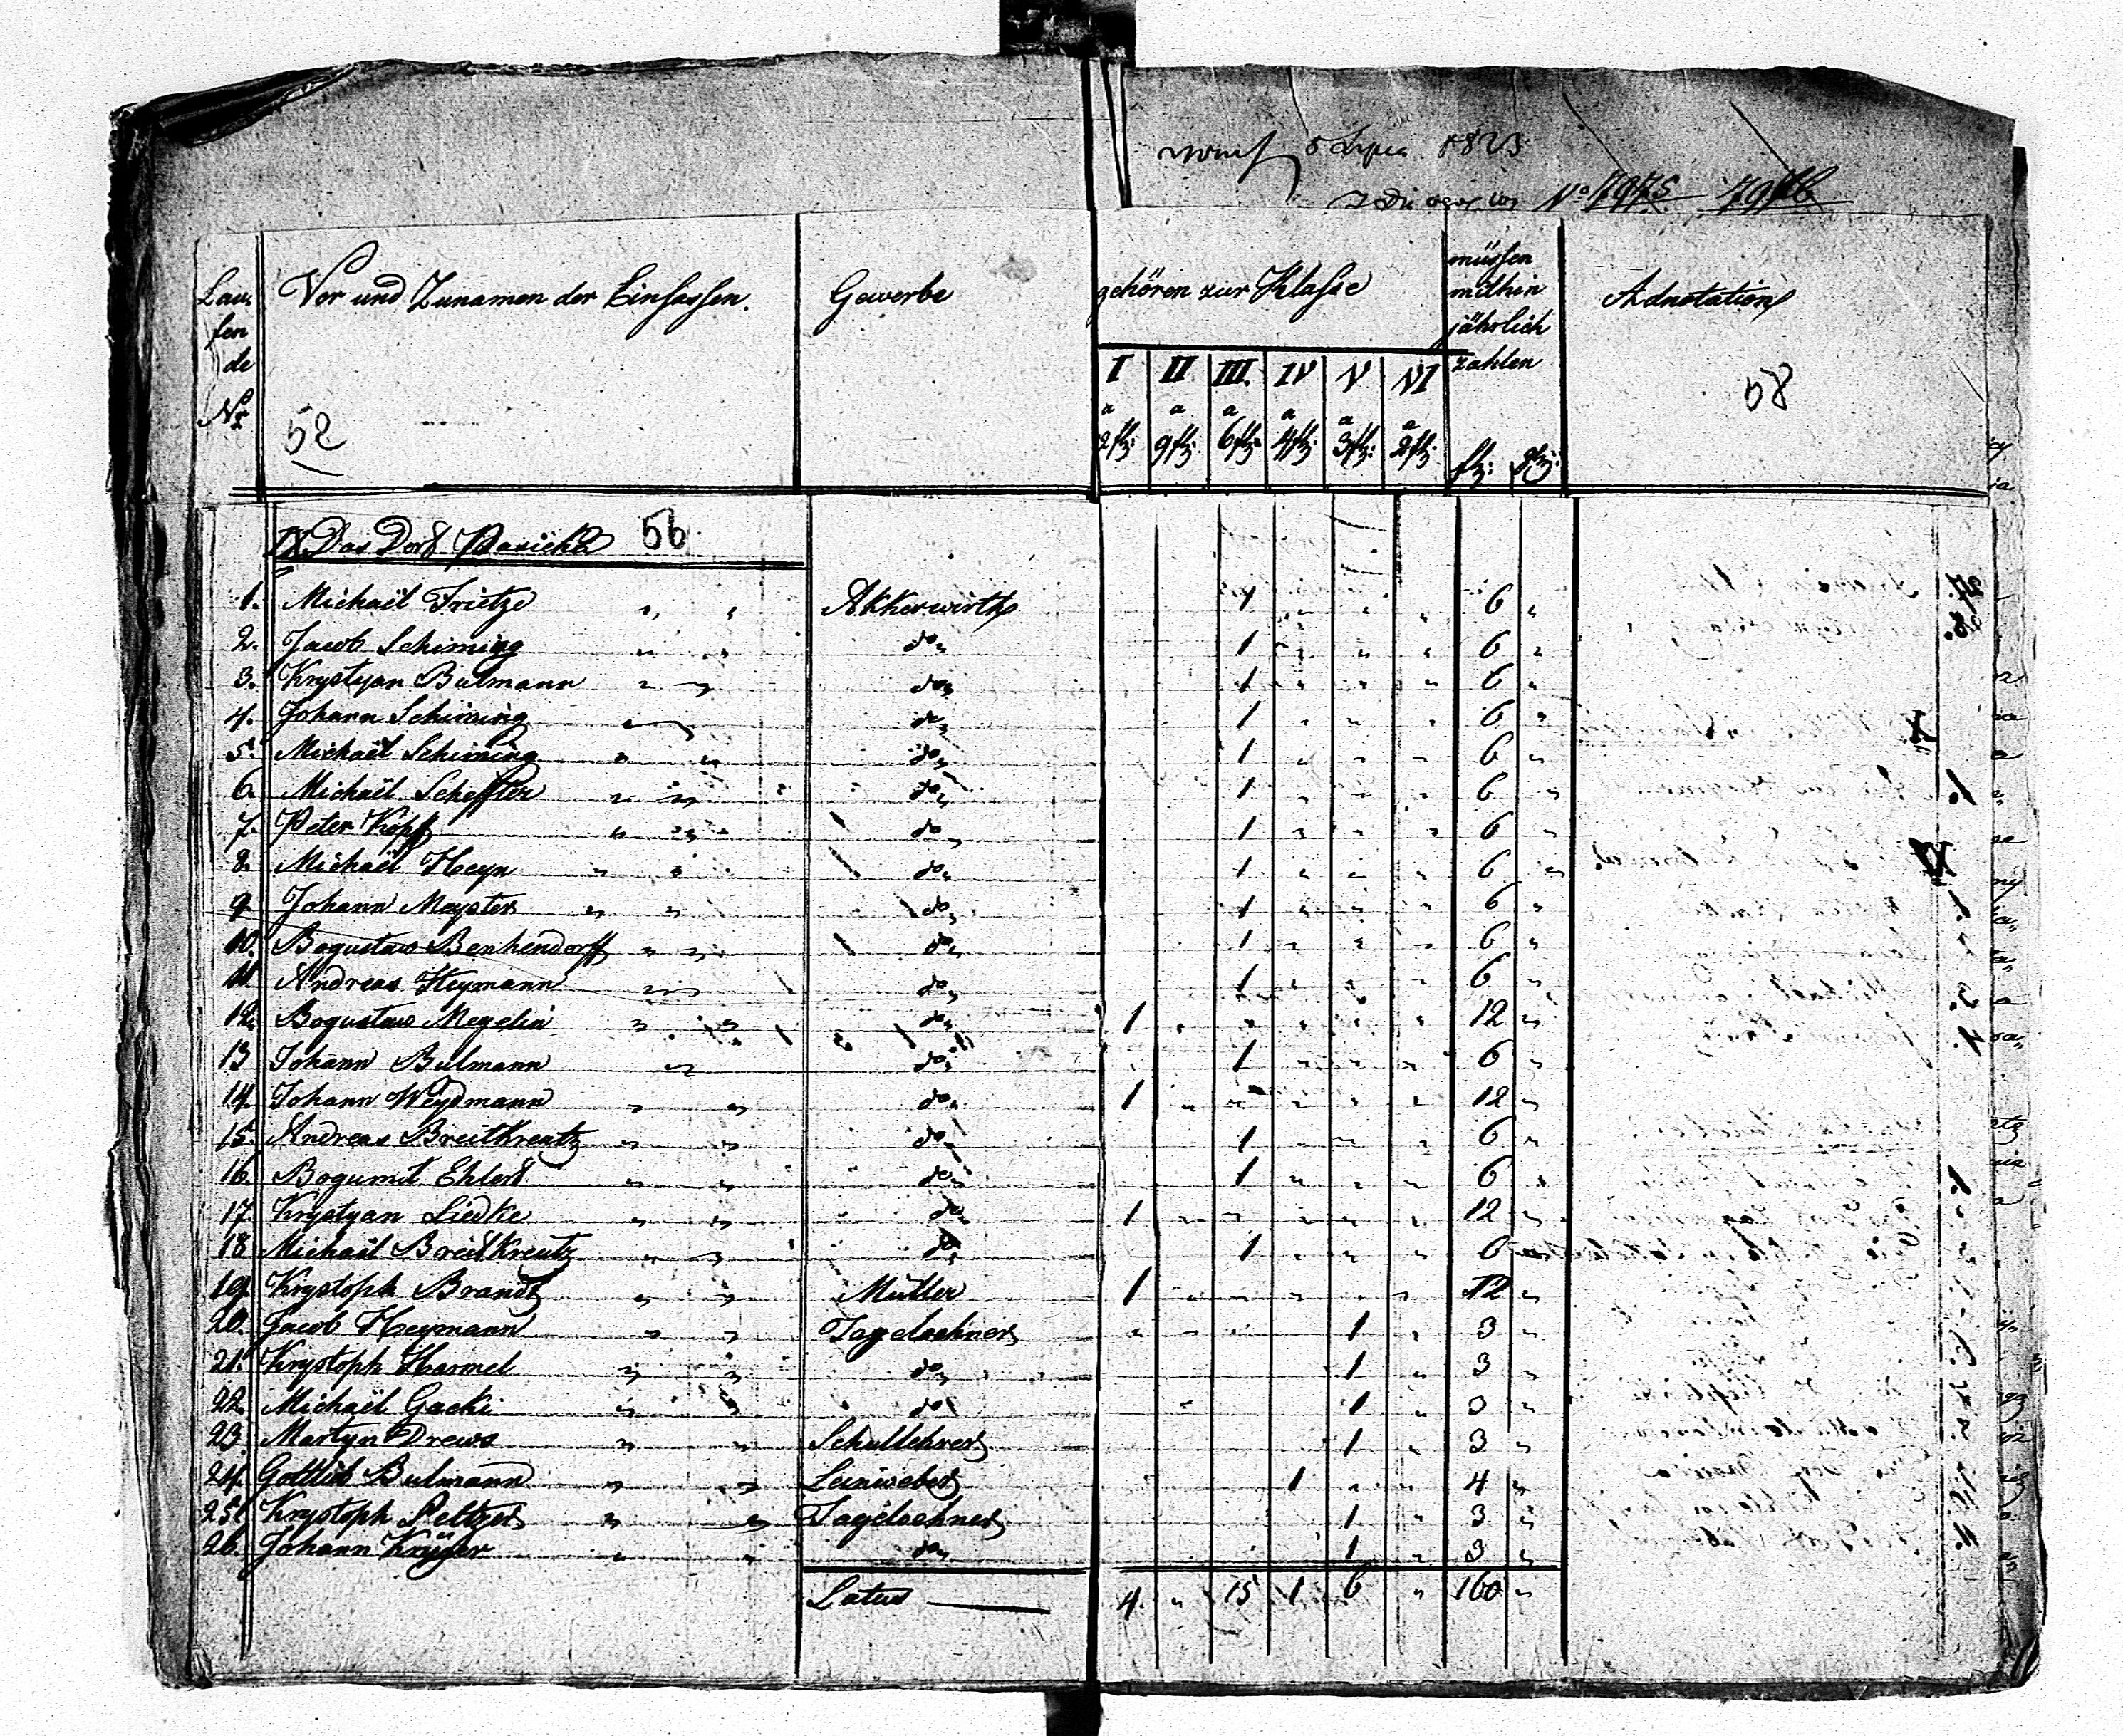 5 Lipca 1825
No 7975 7976
Lau-
fen
de
Nr
Vor und Zunamen der Einsassen.
Gewerbe
gehören zur Klasse
müssen
mithin
jährlich
zahlen
Adnotation
I II III. IV V VI
a a a a a a
2 fl: 9 fl: 6 fl: 4 fl: 3 fl: 2 fl:
fl: gr:
52
58
IX. Das Dorf Pasieka 56
1. Michaël Frietze " " Akkerwirth 1 " " " 6 "
2. Jacob Schiming " " do 1 " " " 6 "
3. Krystyan Bulmann " " do 1 " " " 6 "
4. Johann Schiming " " do 1 " " " 6 "
5. Michaël Schiming " " do 1 " " " 6 "
6. Michaël Scheffler " " do 1 " " " 6 "
7. Peter Kopff " " do 1 " " " 6 "
8. Michaël Heyn " " do 1 " " " 6 "
9. Johann Meyster " " do 1 " " " 6 "
10. Bogusław Benhendorff " " do 1 " " " 6 "
11. Andreas Heymann " " do 1 " " " 6 "
12. Bogusław Megelin " " do 1 " " " " " 12 "
13 Johann Bulmann " do 1 " " " 6 "
14. Johann Weydmann " " do 1 " " " " " 12 "
15. Andreas Breitkreutz " " do 1 " " " 6 "
16. Bogumił Ehlert " " do 1 " " " 6 "
17. Krystyan Liedke " " do 1 " " " " " 12 "
18 Michaël Breitkreutz " " do 1 " " " 6 "
19. Krystoph Brandt " " Müller 1 " " " " " 12 "
20. Jacob Heymann " " Tageloehner " " " 1 " 3 "
21. Krystoph Harmel " " do 1 " 3 "
22. Michaël Gacki " " do " 1 " 3 "
23. Martyn Drews " " Schullehrer 1 " 3 "
24. Gottlieb Bulmann " " Leinweber 1 " " 4 "
25. Krystoph Peltzer " " Tageloehner 1 " 3 "
26. Johann Krüger " " do 1 " 3 "
Latus 4. " 15 1 6 " 160 "